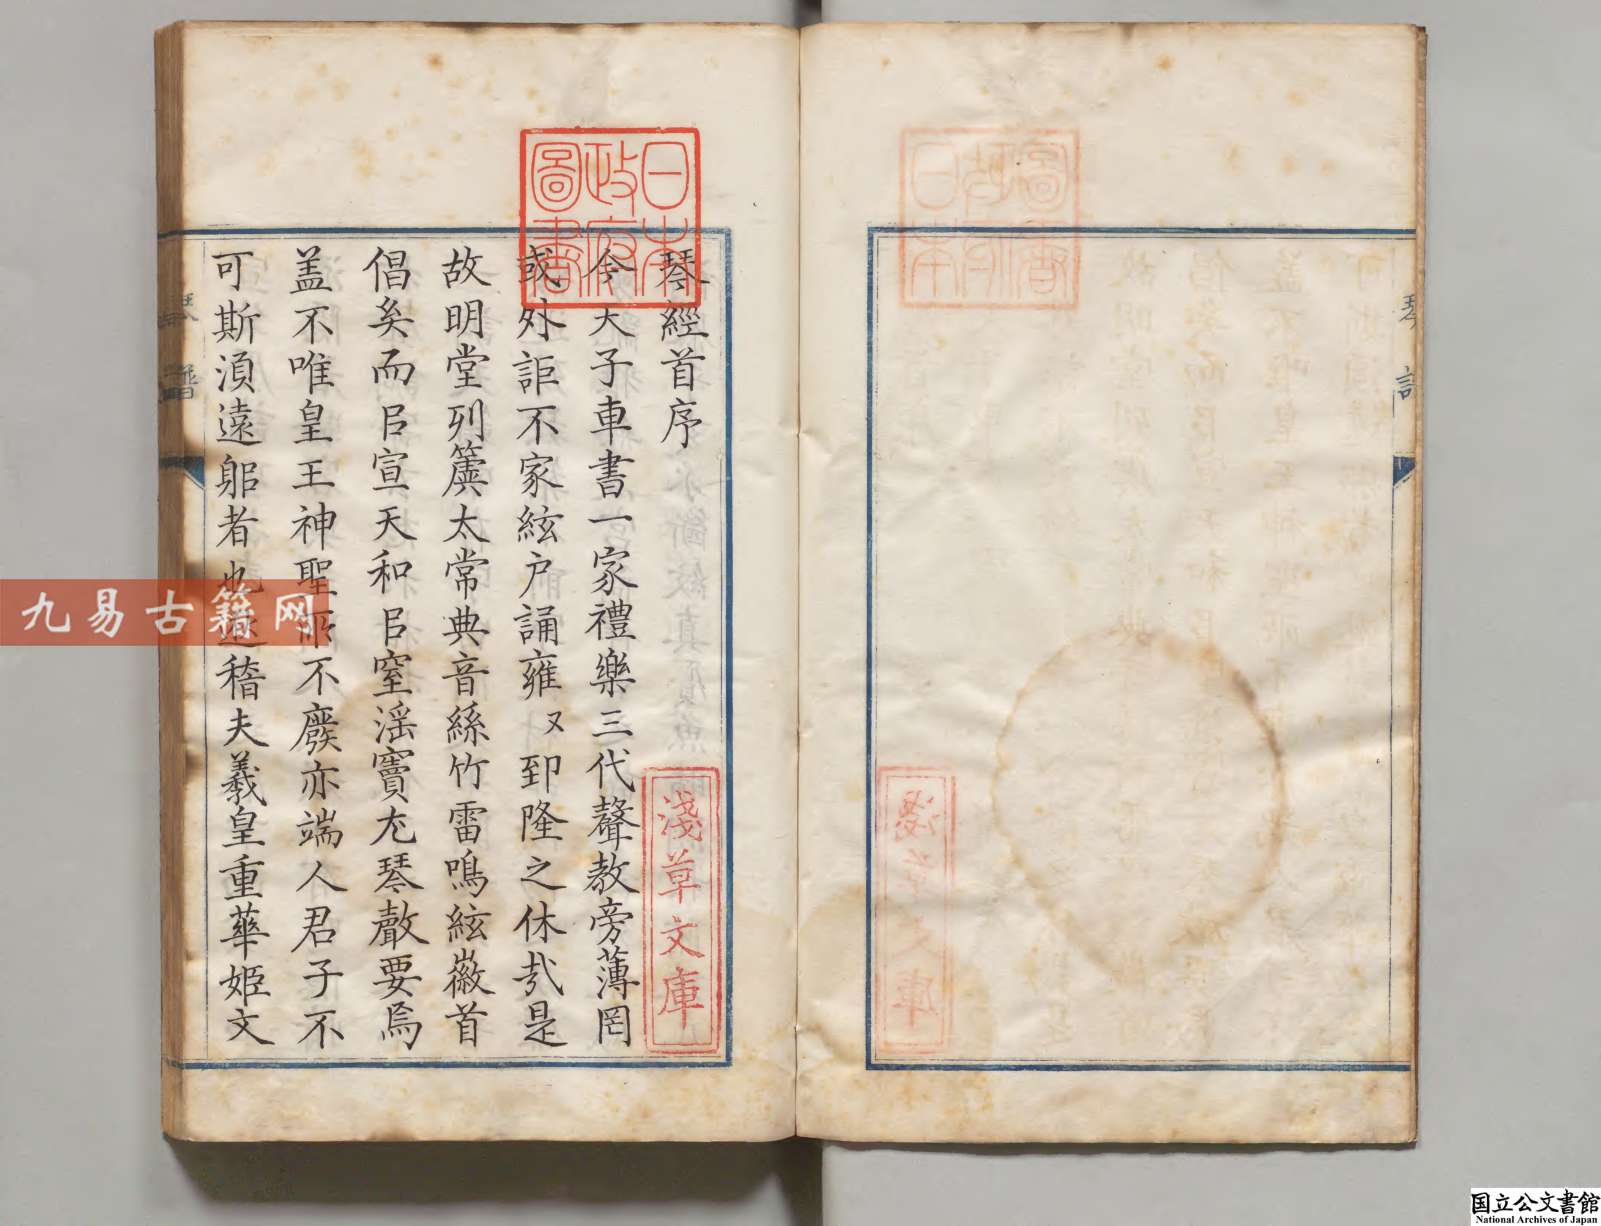 琴經首序
今天子車書一家禮樂三代聲教旁薄罔
或外詎不家絃户誦雍〻郅隆之休㢤是
故明堂列簴太常典音絲竹雷鳴絃徽首
倡矣而㠯宣天和㠯窒滛竇尢琴聲要焉
盖不唯皇王神聖所不廢亦端人君子不
可斯湏遠躳者也遐稽夫羲皇重華姬文
日本
政府
圖書
淺草文庫
琴譜
九易古籍网
国立公文書館
National Archives of Japan